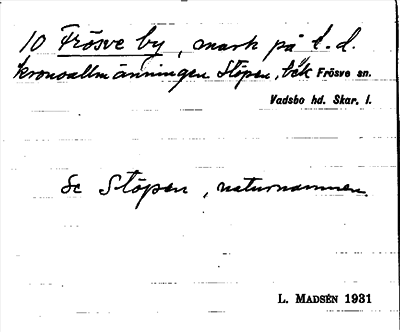 10 Frösve by, mark på t. d.
kronoallmänningen Stöpen, bék Frösve sn.
Vadsbo hd. Skar. l.
Se Stöpen, naturnamnen.
L. MADSÉN 1931